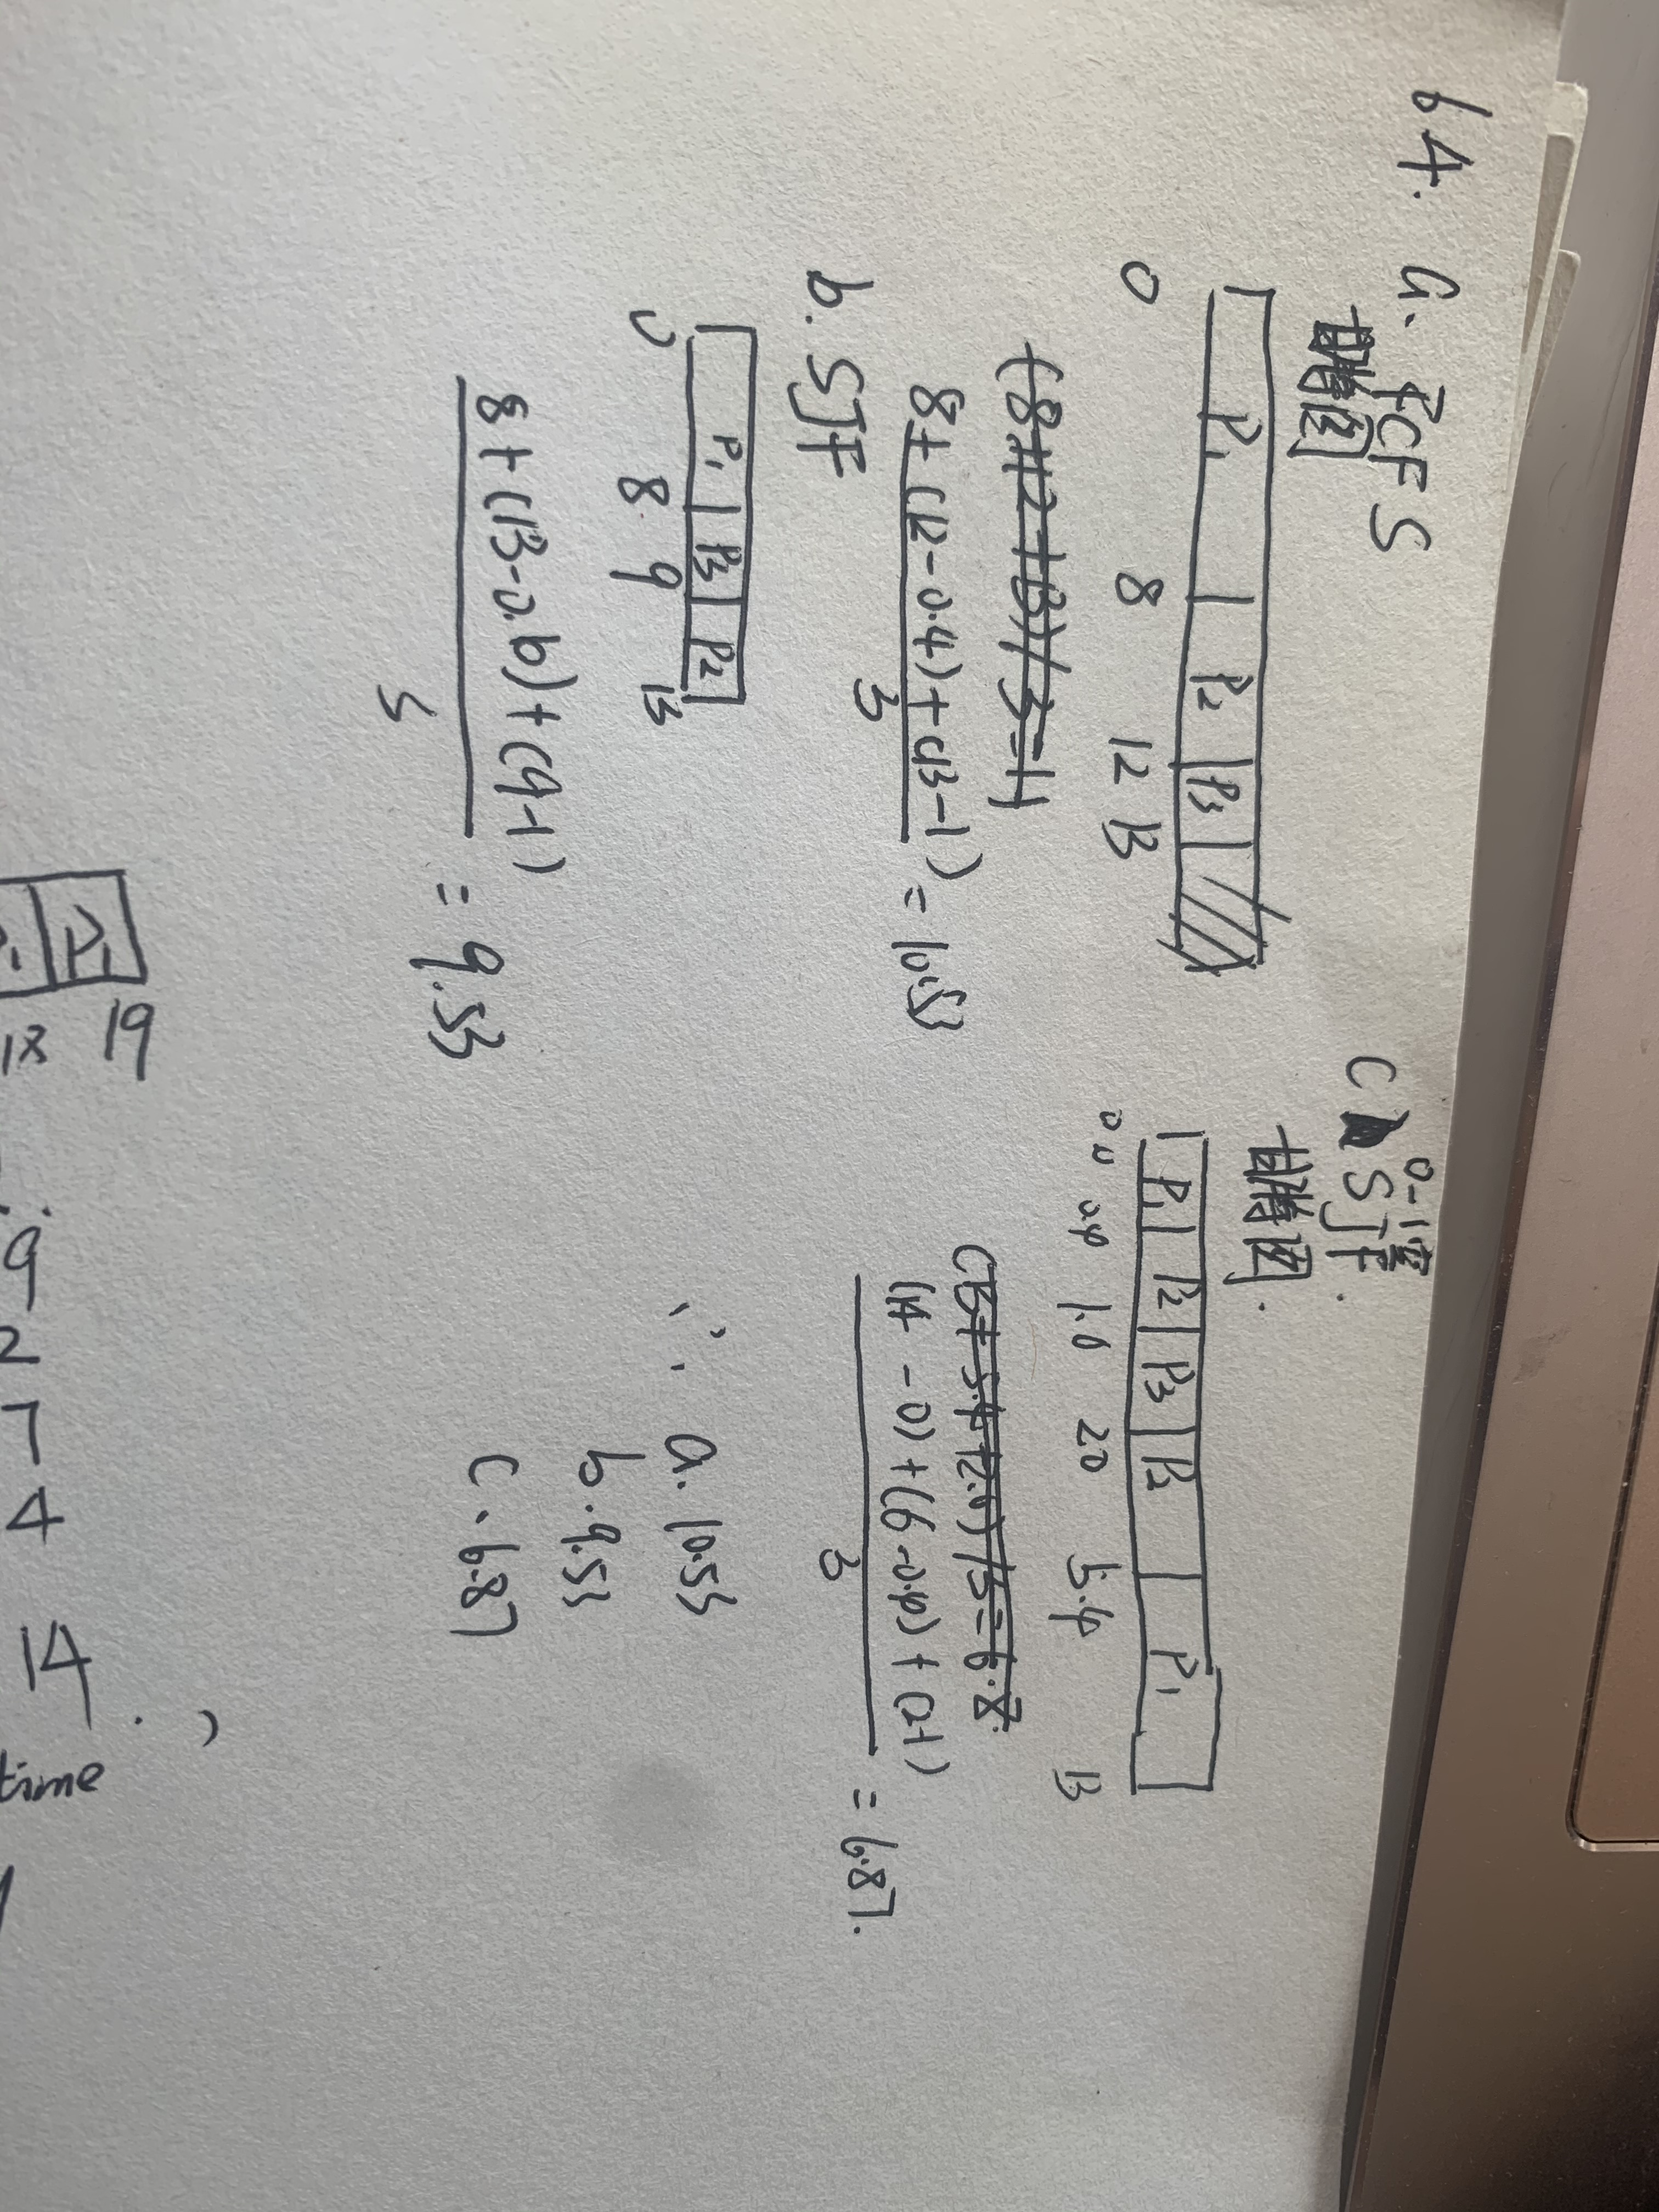 6.4. a. FCFS
甘特图
P1 P2 P3
0 8 12 13
(8+12+13)/3=11
8+(12-0.4)+(13-1)
3
= 10.53
b. SJF
P1 P3 P2
0 8 9 13
8+(13-0.6)+(9-1)
= 9.53
C SJF
甘特图.
P1 P2 P3 P2 P1
0.4 1.0 20 5.4 13
(14-0)+(6-0.4)+(2-1)
3
= 6.87.
∴ a. 10.53
b. 9.53
C. 6.87
P1
18 19
9
2
7
4
14.
time